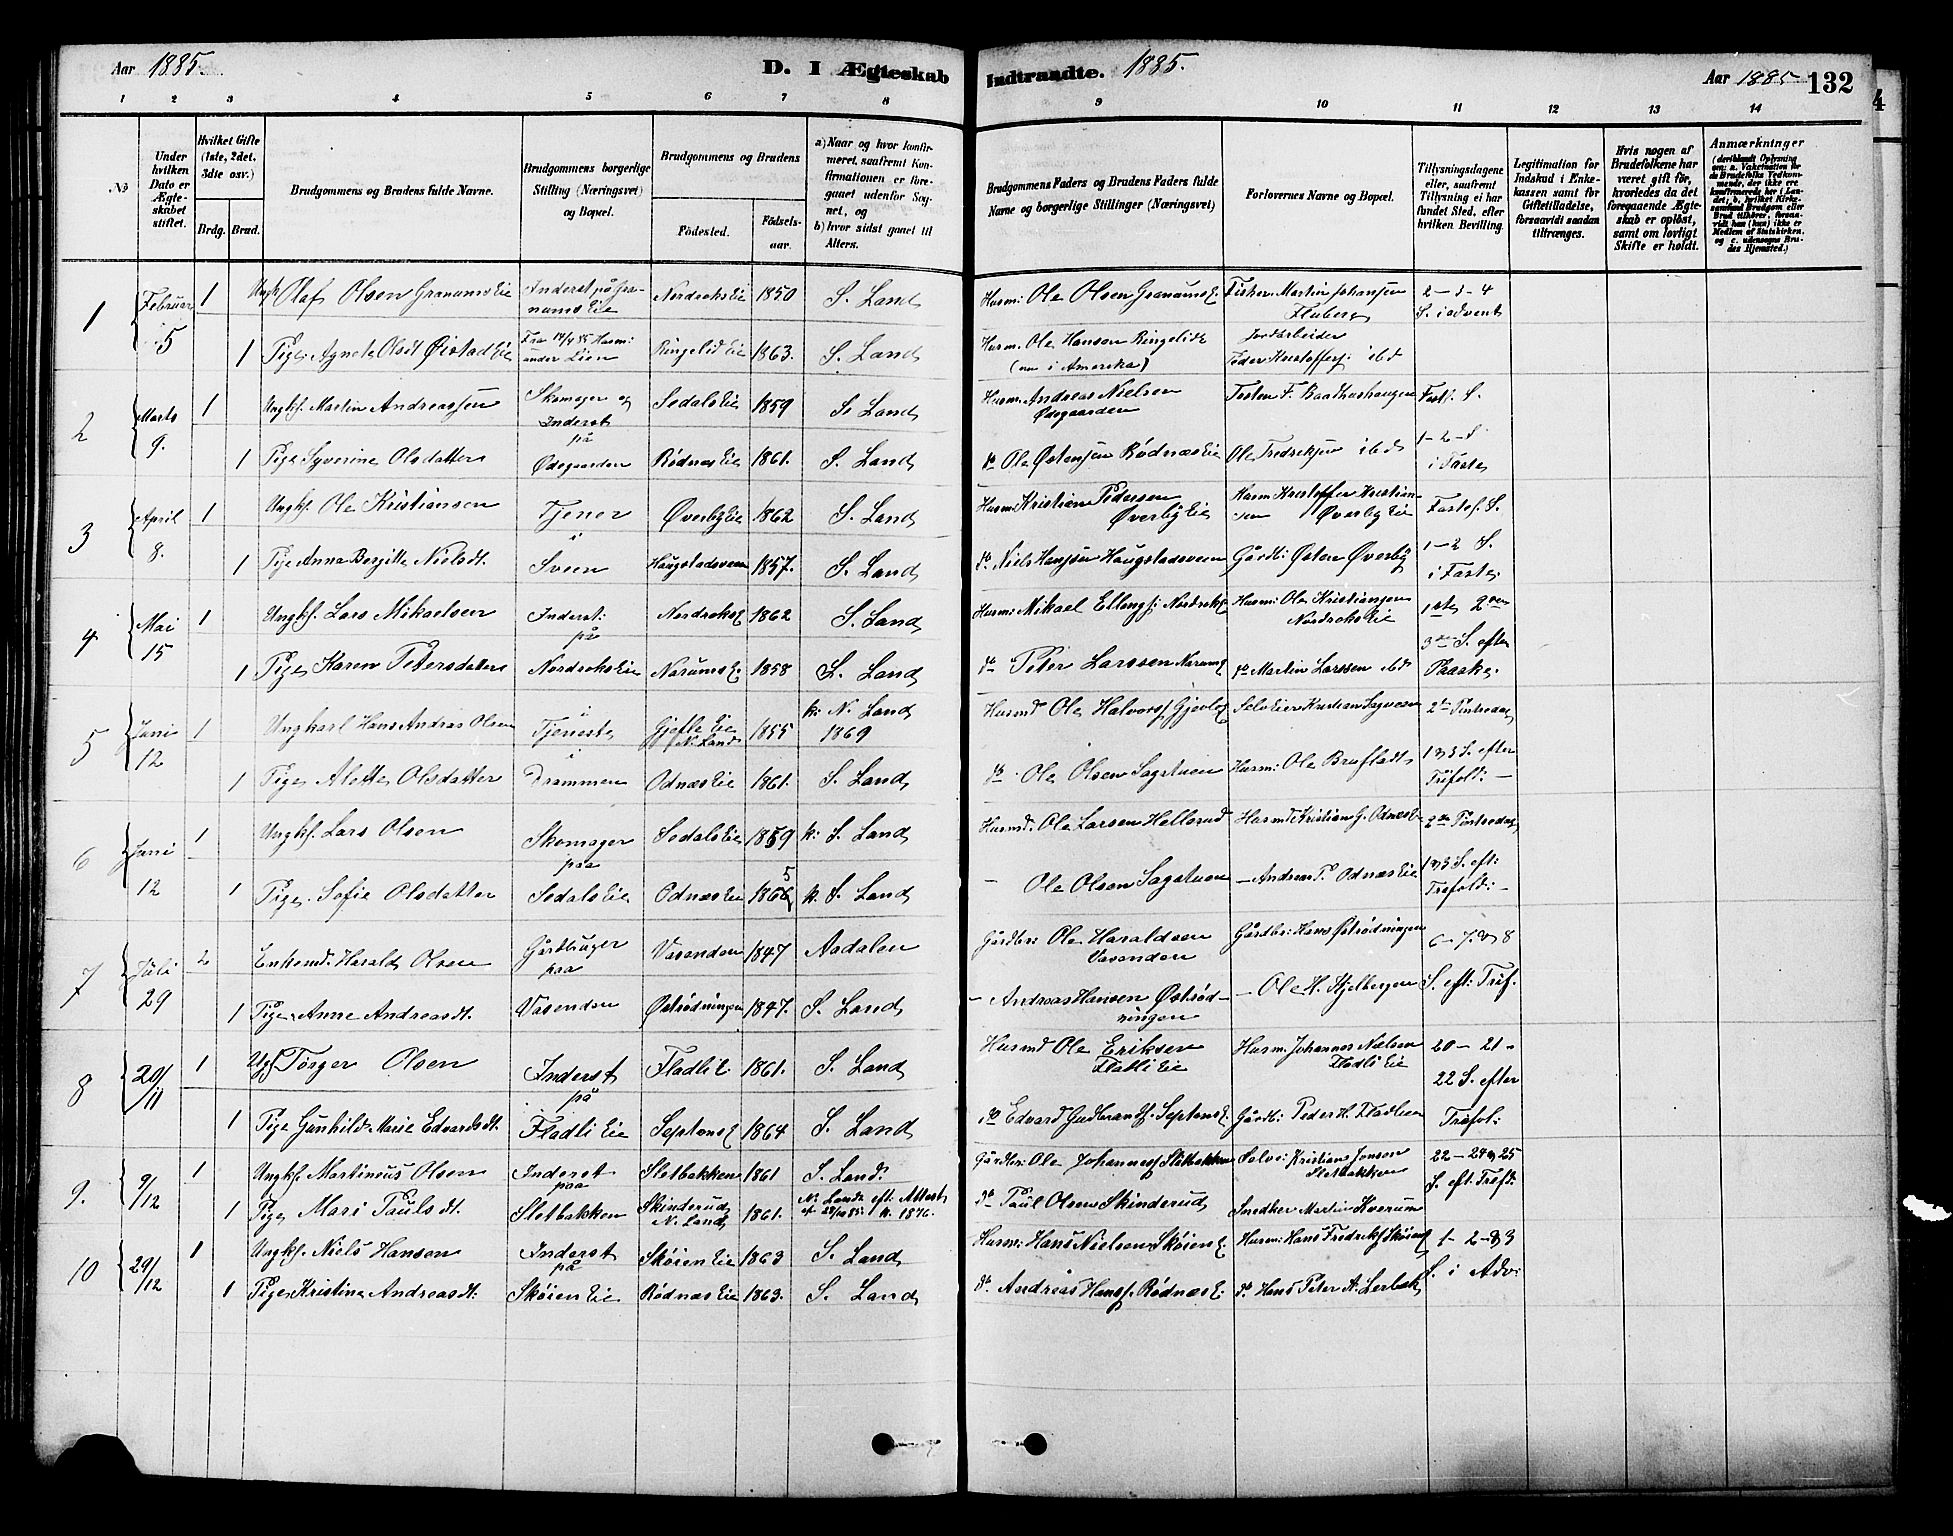 Aar 1885.
D. I Ægteskab Indtraadte. 1885.
Aar 1885 132
1 2 3 4 5 6 7 8 9 10 11 12 13 14
No
Under hvilken Dato er Ægteskabet stiftet.
Hvilket Gifte (1ste, 2det, 3die osv.)
Brdg. Brud.
Brudgommens og Brudens fulde Navne.
Brudgommens borgerlige Stilling (Næringsvei) og Bopæl.
Brudgommens og Brudens
Fødested. Fødselsaar.
a) Naar og hvor konfirmeret, saafremt Konfirmationen er foregaaet udenfor Sognet, og
b) hvor sidst gaaet til Alters.
Brudgommens Faders og Brudens Faders fulde Navne og borgerlige Stillinger (Næringsvei)
Forlovernes Navne og Bopæl.
Tillysningsdagene eller, saafremt Tillysning ei har fundet Sted, efter hvilken Bevilling.
Legitimation for Indskud i Enkekassen samt for Giftetilladelse, forsaavidt saadan tiltrænges.
Hvis nogen af Brudefolkene har været gift før, hvorledes da det foregaaende Ægteskab er opløst, samt om lovligt Skifte er holdt.
Anmærkninger
1 Februar 5 1 Ungk. Olaf Olsen Granumseie Inderst på Granumseie Nordrokseie 1850 S. Land Husm: Ole Olsen Granumse. Fisker Martin Johansen Fluberg 2-3-4 S. i advent
1 Pige Agnete Olsdt Øistadeie Fra 14/4 85 Husm: under Lien Ringelideie 1863. S. Land Husm. Ole Hansen Ringelide (nu i Amerika) Jordarbeider Peder Kristoffers: ibd
2 Marts 9. 1 Ungkf. Martin Andreassen Skomager og Inderst på Sodalseie 1859 S. Land Husm. Andreas Nielsen Ødegaarden Torsten F. Baathushaugen Fastf. S.
1 Pige Syverine Olsdatter Ødegaarden Rødnæseie 1861. S. Land do Ole Østensen Rødnæseie Ole Fredriksen ibd 1-2-S. i Faste
3 April 8. 1 Ungkf. Ole Kristiansen Tjener i Øverbyeie 1862 S. Land Husm: Kristian Pedersen Øverbyeie Husm Kristoffer Kristiansen Øverbyeie Fastef. S.
1 Pige Anna Bergitte Nielsdt. Sveen Haugstadsveen 1857. S. Land do Niels Hansen Haugstadsveen Gårdb: Østen Øverby 1-2 S. i Faste
4 Mai 15 1 Ungkf. Lars Mikaelsen Inderst: på Nordrokse 1862 S. Land Husm: Mikael Ellings: Nordrokse Husm: Ole Kristiansen Nordrokseie 1ste 2den
1 Pige Karen Petersdatter Nordrokseie Narumse. 1858 S. Land do Peter Larssen Narumse do Martin Larssen ibd 3die S. efter Paaske.
5 Juni 12 1 Ungkarl Hans Andreas Olsen i Tjeneste i Gjefleeie N. Land 1855 k: N. Land 1869 Husmd Ole Halvors. Gjevle Selveier Kristian Sagveen 2den Pintsedag
1 Pige Alette Olsdatter Drammen Odnæseie 1861. S. Land do Ole Olsen Sagstuen Husm: Ole Brufladt 1 & 3 S. efter Trifold:
6 Juni 12 1 Ungkf. Lars Olsen Skomager paa Sodalseie 1859 k: S. Land Husmd. Ole Larsen Hellerud Husmd Kristian G. Odnæse 2den Pintsedag
1 Pige Sofie Olsdatter Sodalseie Odnæseie 1865 k. S. Land Ole Olsen Sagstuen Andreas P. Odnæseie 1 & 3 S. eft: Trefold:
7 Juli 29 2 Enkemd. Harald Olsen Gårdbruger paa Vasenden 1847 Aadalen Gårdbr: Ole Haraldsen Vasenden Gårdbr: Hans Østrødningen 6-7 & 8
1 Pige Anne Andreasdt. Vasenden Østrødningen 1847. S. Land Andreas Hansen Østrødningen Ole H. Hjelbergen S. eft: Trif.
8 20/11 1 Ugf Torger Olsen Inderst på Fladli E. 1861. S. Land Husmd Ole Eriksen Flatlieie Husm. Johannes Nielsen Fladlieie 20-21- 22 S. efter
1 Pige Gunhild Marie Edvardsdt. Fladlieie Septonse 1864 S. Land do Edvard Gudbrands. Septonse. Gårdb: Peder H. Fladlien Trefol:
9. 9/12 1 Ungkf. Martineus Olsen Inderst paa Sletbakken 1861 S. Land. Gårdbr: Ole Johanness. Sletbakken Selve: Kristian Jonsen Sletbakken 22-24 & 25
1 Pige Mari Paulsdt. Sletbakken Skinderud N. Land 1861. N. Land eft: Attest af 28/10 85. k. 1876. do Paul Olsen Skinderud Snedker Martin Hverum S. eft. Trefd:
10 29/12 1 Ungkf. Niels Hansen Inderst på Skøieneie 1863 S. Land Husm: Hans Nielsen Skøiene. Husm: Hans Fredriks. Skøiene 1-2-&3
1 Pige Kristine Andreasdt. Skøieneie Rødnæseie 1863. S. Land do Andreas Hans. Rødnæse. do Hans Peter A. Lerbæk S. i Adv: